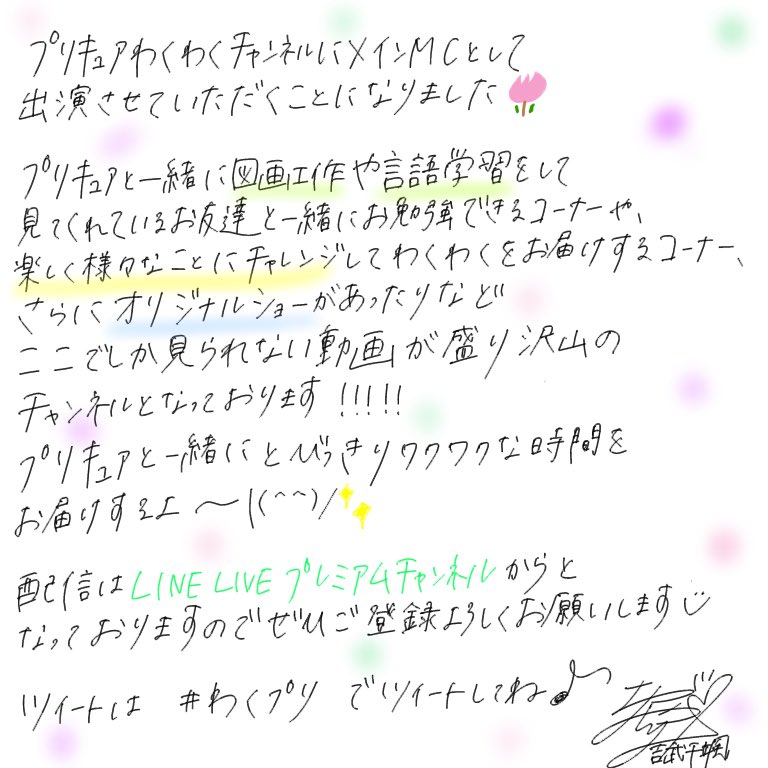 プリキュアわくわくチャンネルにメインMCとして
出演させていただくことになりました
プリキュアと一緒に図画工作や言語学習をして
見てくれているお友達と一緒にお勉強できるコーナーや、
楽しく様々なことにチャレンジしてわくわくをお届けするコーナー、
さらにオリジナルショーがあったりなど
ここでしか見られない動画が盛り沢山の
チャンネルとなっております!!!!!
プリキュアと一緒にとびっきりワクワクな時間を
お届けするよ〜\(^^)/
配信はLINE LIVE プレミアムチャンネルからと
なっておりますのでぜひご登録よろしくお願いします
ツイートは #わくプリ でツイートしてね♪
吉武千颯